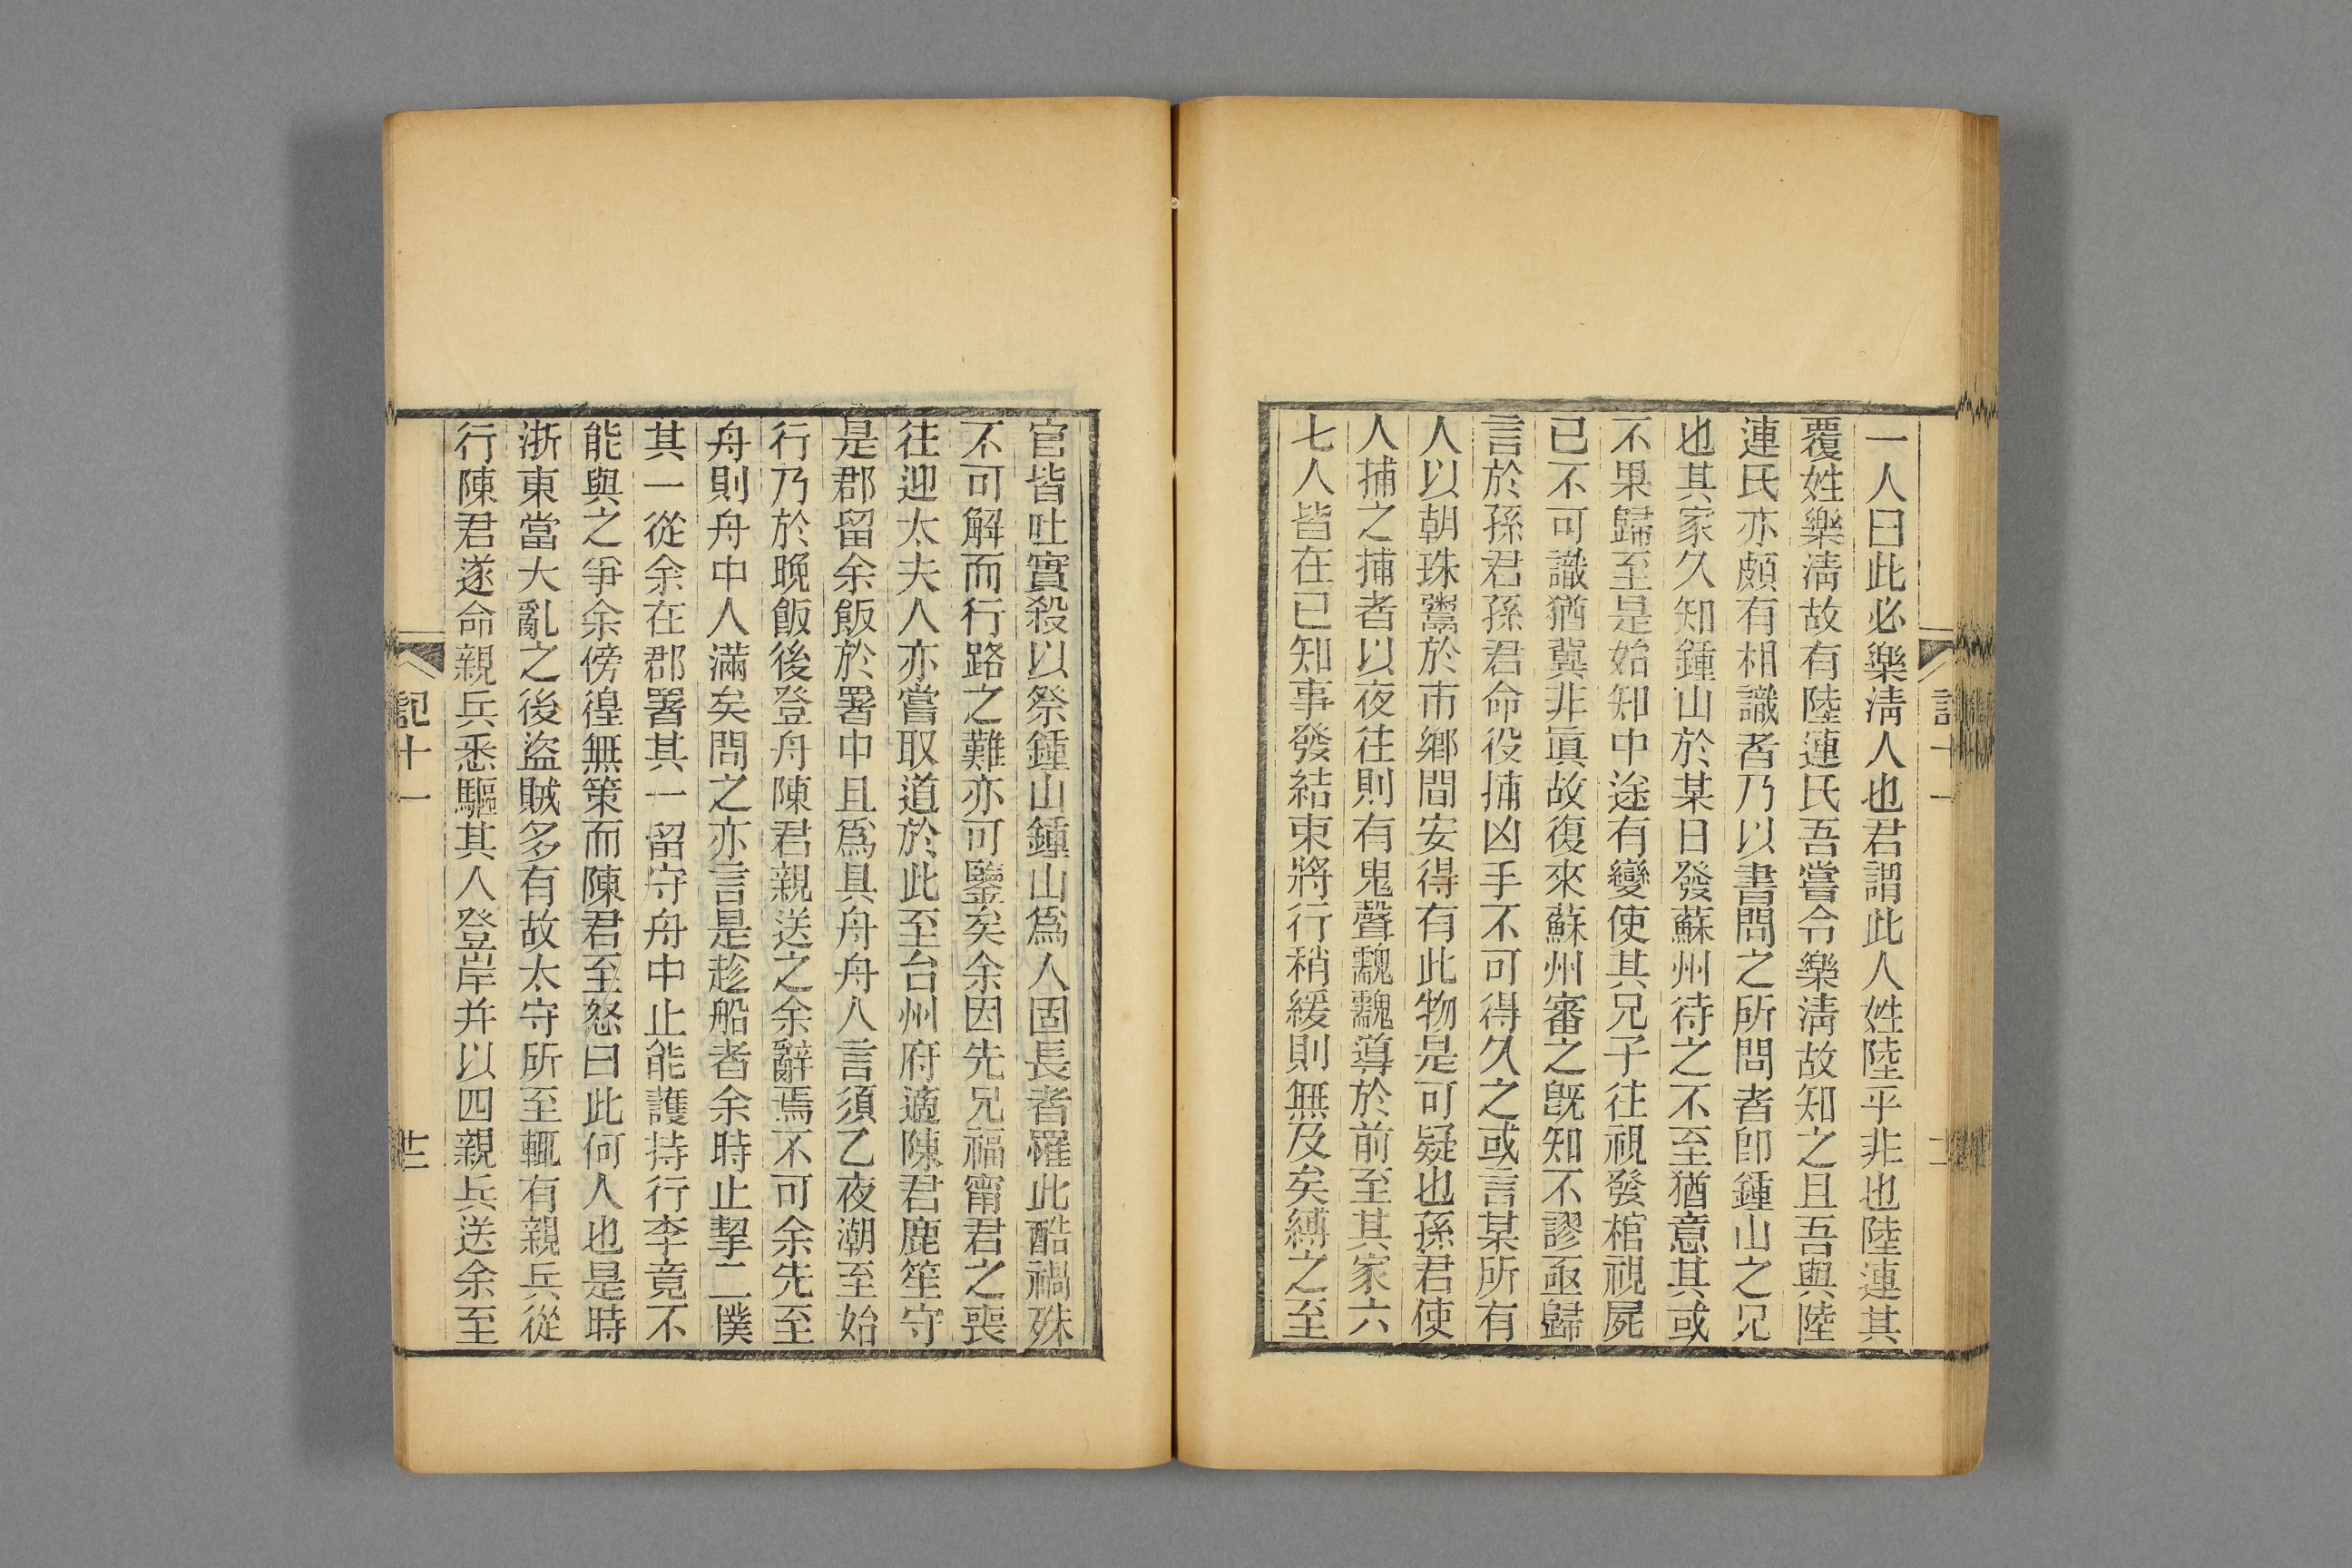 一人曰此必樂淸人也君謂此人姓陸乎非也陸連其
覆姓樂淸故有陸連氏吾嘗令樂淸故知之且吾與陸
連氏亦頗有相識者乃以書問之所問者卽鍾山之兄
也其家久知鍾山於某日發蘇州待之不至猶意其或
不果歸至是始知中途有變使其兄子往視發棺視屍
已不可識猶冀非眞故復來蘇州審之旣知不謬亟歸
言於孫君孫君命役捕凶手不可得久之或言某所有
人以朝珠鬻於市鄉間安得有此物是可疑也孫君使
人捕之捕者以夜往則有鬼聲飄飄導於前至其家六
七人皆在已知事發結束將行稍緩則無及矣縛之至
官皆吐實殺以祭鍾山鍾山爲人固長者罹此酷禍殊
不可解而行路之難亦可鑒矣余因先兄福甯君之喪
往迎太夫人亦嘗取道於此至台州府適陳君鹿笙守
是郡留余飯於署中且爲具舟舟人言須乙夜潮至始
行乃於晚飯後登舟陳君親送之余辭焉不可余先至
舟則舟中人滿矣問之亦言是趁船者余時止挈二僕
其一從余在郡署其一留守舟中止能護持行李竟不
能與之爭余傍徨無策而陳君至怒曰此何人也是時
浙東當大亂之後盜賊多有故太守所至輒有親兵從
行陳君遂命親兵悉驅其人登岸并以四親兵送余至
記十一